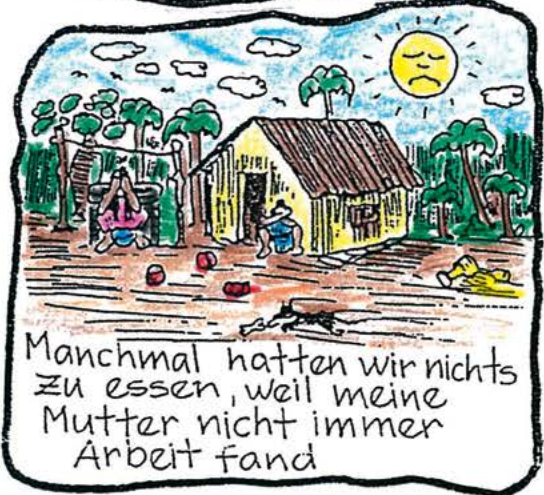 Manchmal hatten wir nichts
zu essen, weil meine
Mutter nicht immer
Arbeit fand